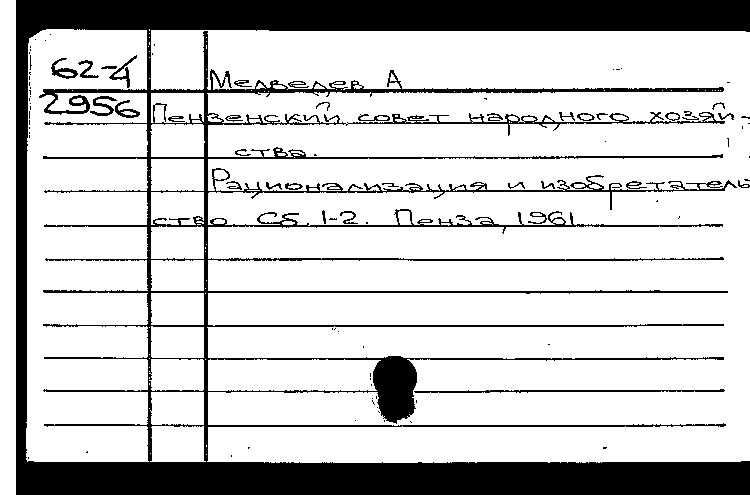 62-4 Медведев, А
2956 Пензенский совет народного хозяй-
ства.
Рационализация и изобретатель
ство. Сб. 1-2. Пенза, 1961